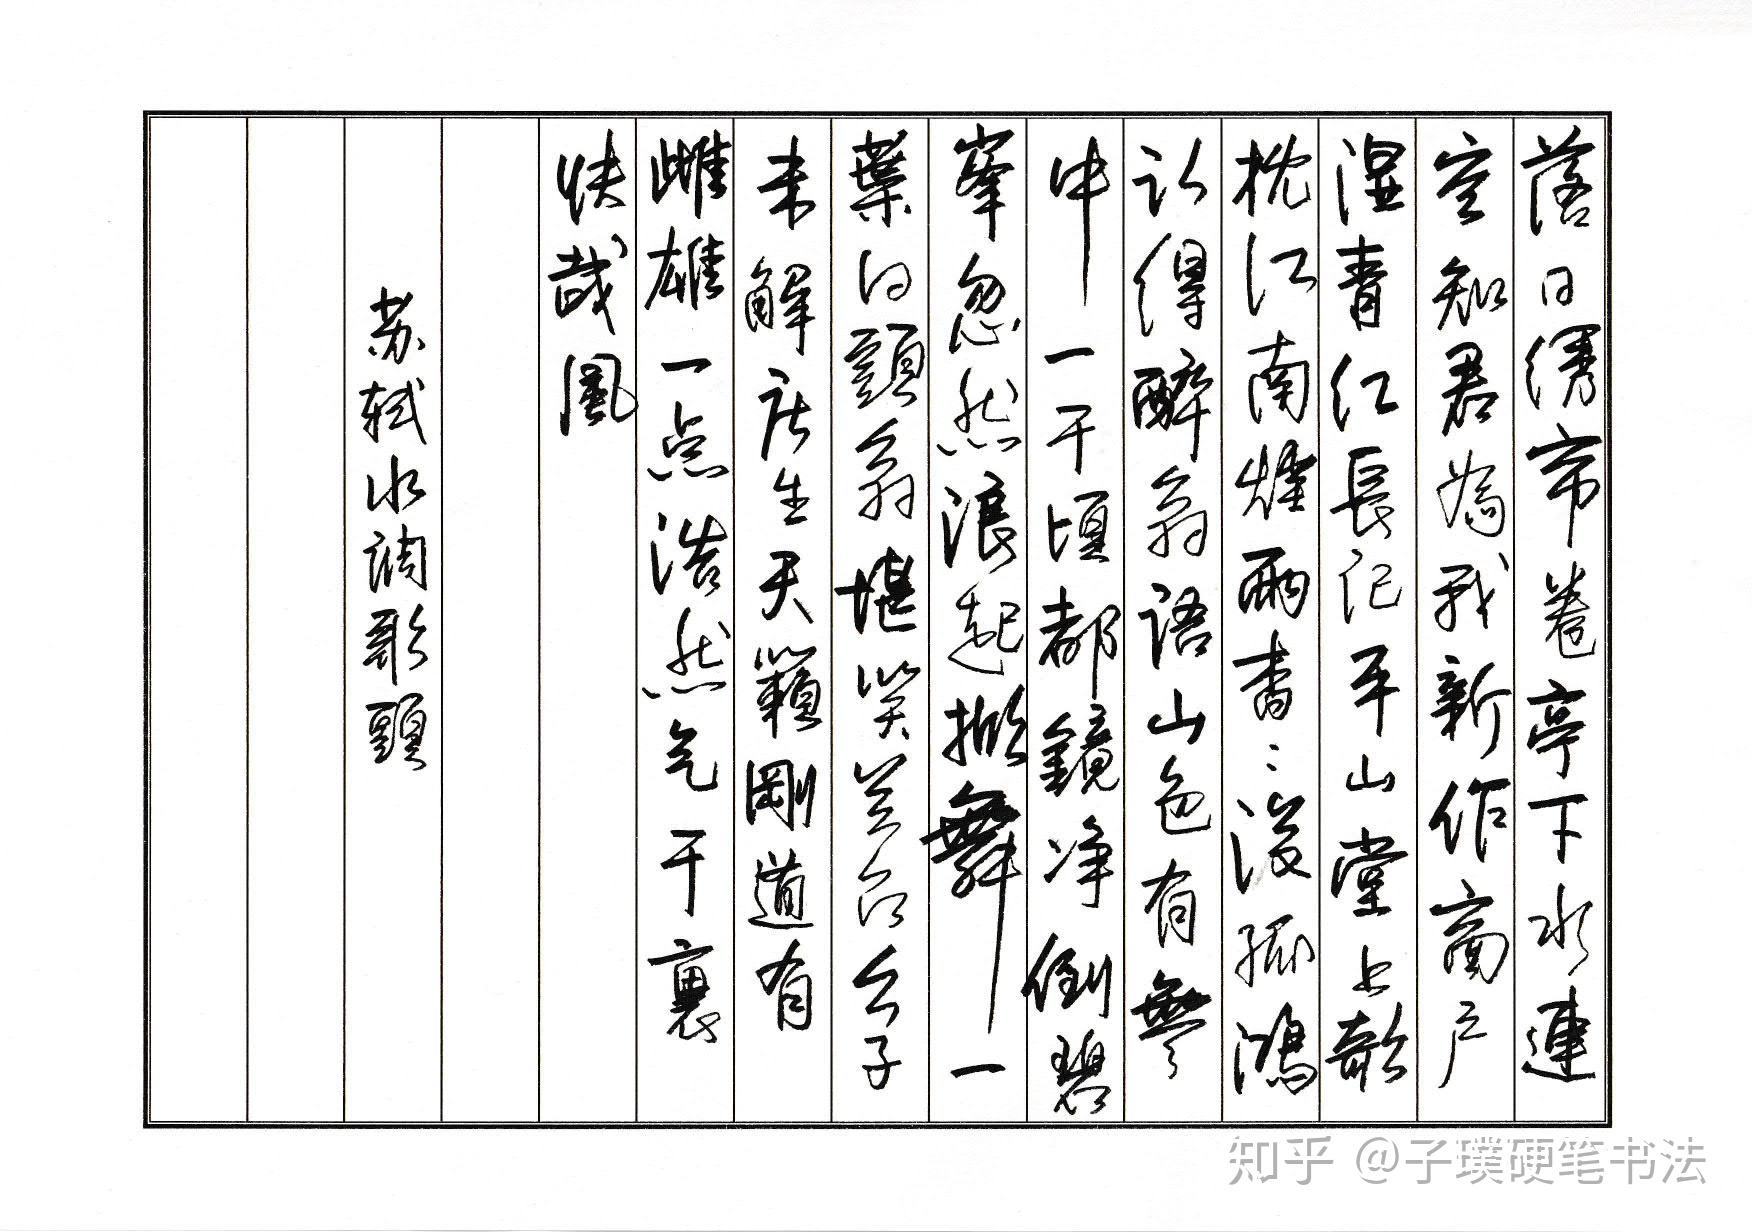 落日绣帘卷亭下水連
空知君為我新作窗户
湿青红長记平山堂上欹
枕江南煙雨杳〻没孤鸿
认得醉翁语山色有無
中一千頃都鏡净倒碧
峯忽然浪起掀舞一
葉白頭翁堪笑兰台公子
未解庄生天籟剛道有
雌雄一点浩然气千裏
快哉風
苏轼水调歌頭
知乎 @子璞硬笔书法